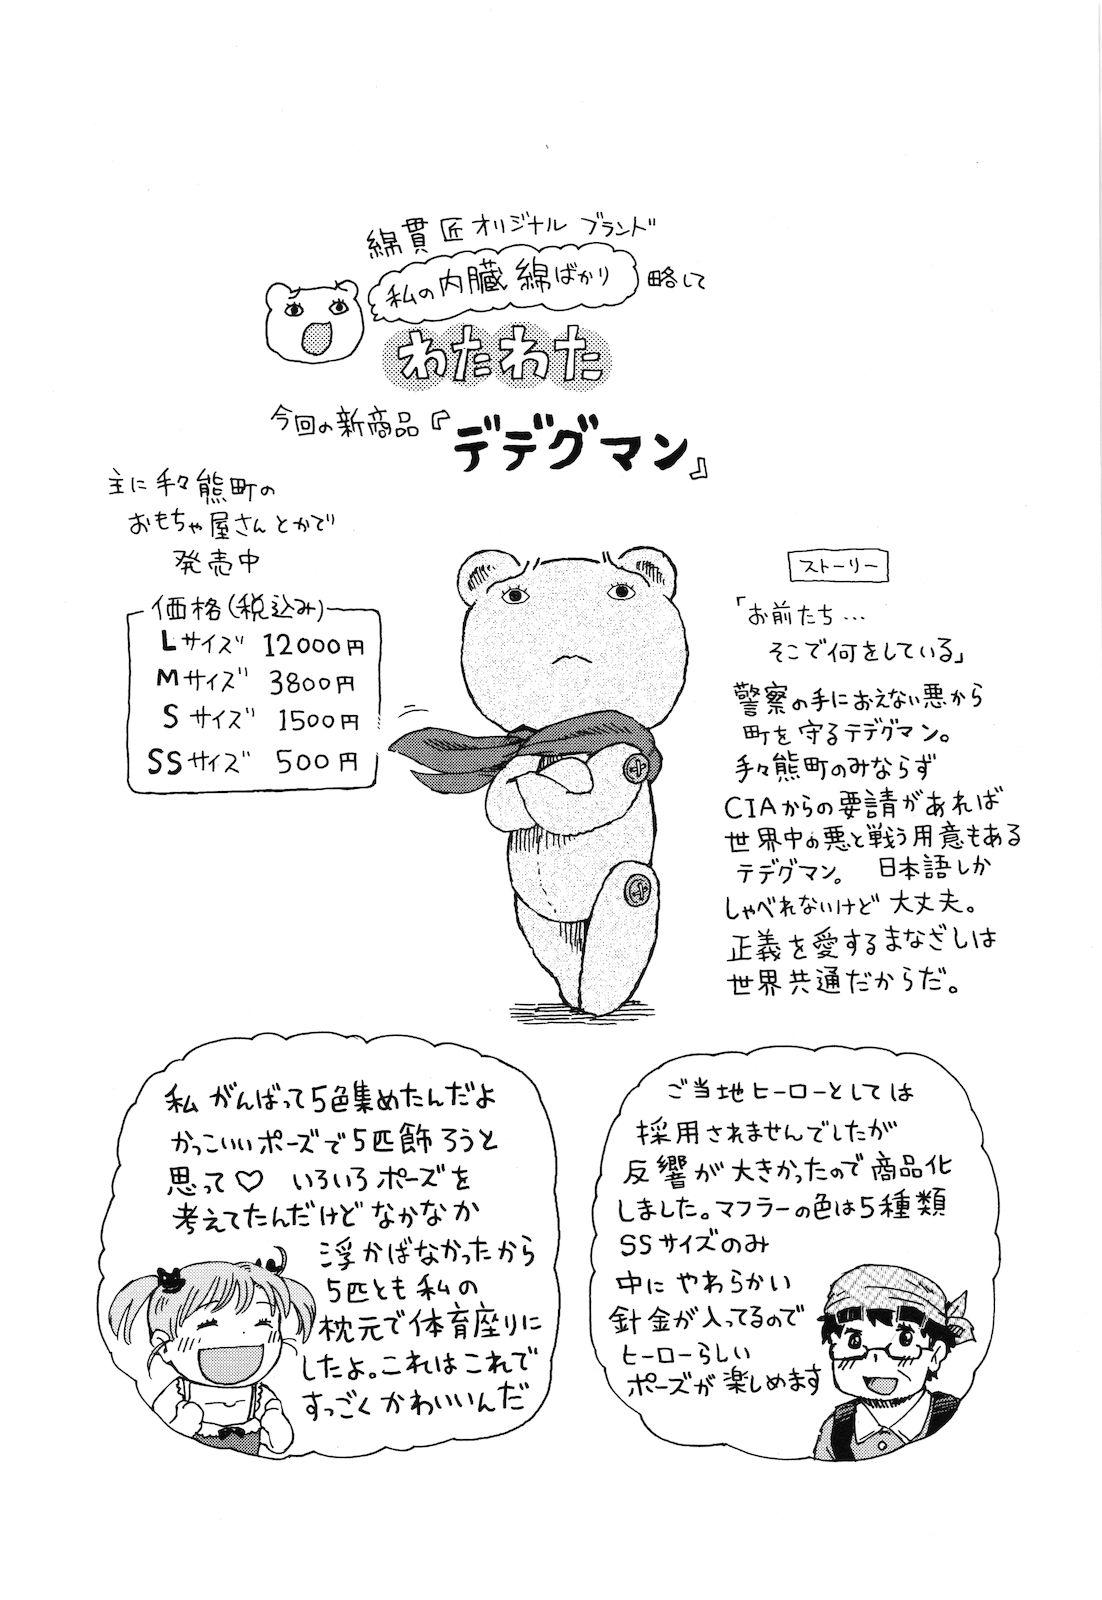 綿貫匠オリジナルブランド
私の内臓綿ばかり 略して
わたわた
今回の新商品『デデグマン』
主に手々熊町の
おもちゃ屋さんとかで
発売中
価格(税込み)
Lサイズ 12000円
Mサイズ 3800円
Sサイズ 1500円
SSサイズ 500円
ストーリー
「お前たち…
そこで何をしている」
警察の手におえない悪から
町を守るデデグマン。
手々熊町のみならず
CIAからの要請があれば
世界中の悪と戦う用意もある
デデグマン。 日本語しか
しゃべれないけど大丈夫。
正義を愛するまなざしは
世界共通だからだ。
私がんばって5色集めたんだよ
かっこいいポーズで5匹飾ろうと
思って♡ いろいろポーズを
考えてたんだけどなかなか
浮かばなかったから
5匹とも私の
枕元で体育座りに
したよ。これはこれで
すっごくかわいいんだ
ご当地ヒーローとしては
採用されませんでしたが
反響が大きかったので商品化
しました。マフラーの色は5種類
SSサイズのみ
中にやわらかい
針金が入ってるので
ヒーローらしい
ポーズが楽しめます